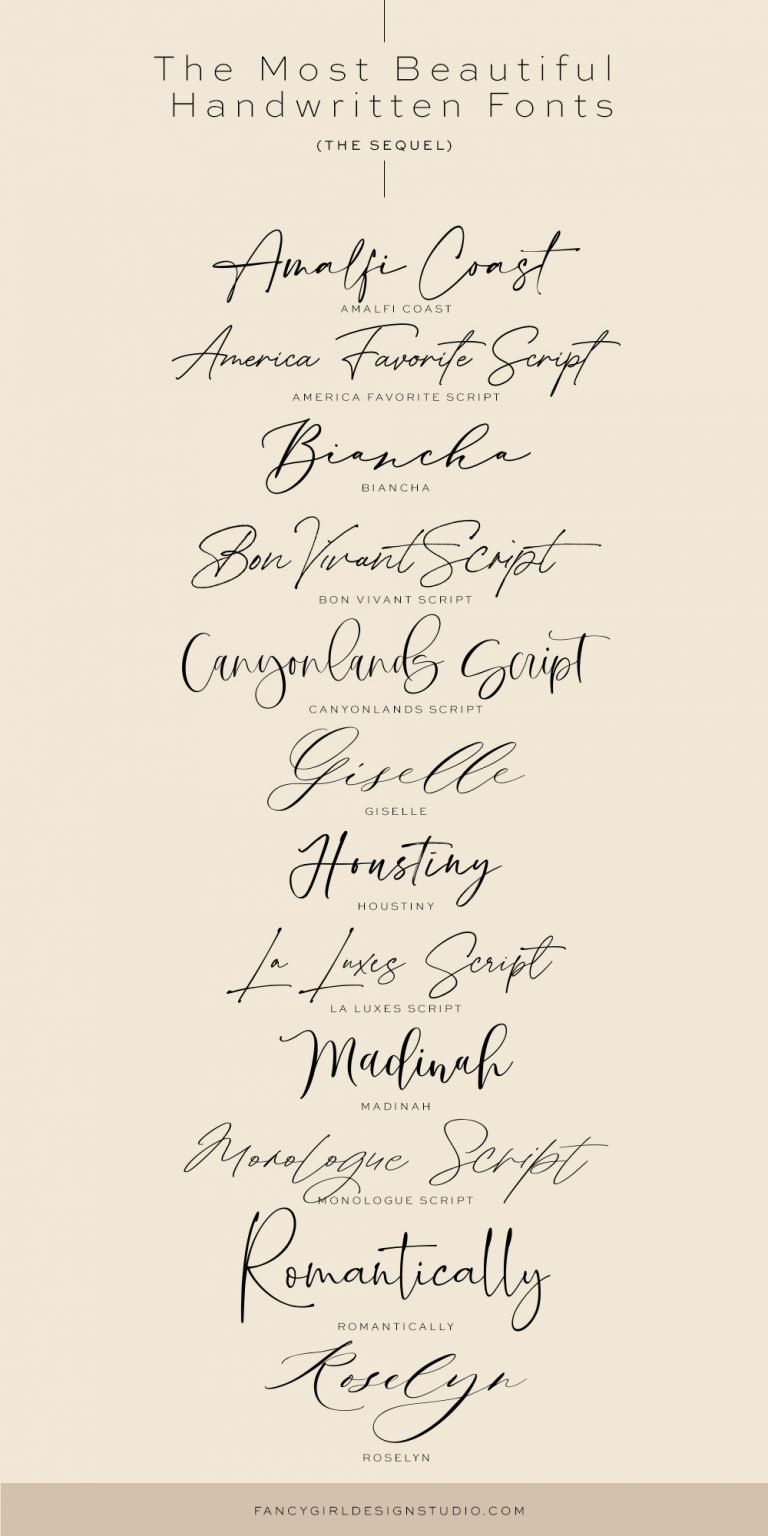 The Most Beautiful
Handwritten Fonts
(THE SEQUEL)
Amalfi Coast
AMALFI COAST
America Favorite Script
AMERICA FAVORITE SCRIPT
Biancha
BIANCHA
Bon Vivant Script
BON VIVANT SCRIPT
Canyonlands Script
CANYONLANDS SCRIPT
Giselle
GISELLE
Houstiny
HOUSTINY
La Luxes Script
LA LUXES SCRIPT
Madinah
MADINAH
Monologue Script
MONOLOGUE SCRIPT
Romantically
ROMANTICALLY
Roselyn
ROSELYN
FANCYGIRLDESIGNSTUDIO.COM